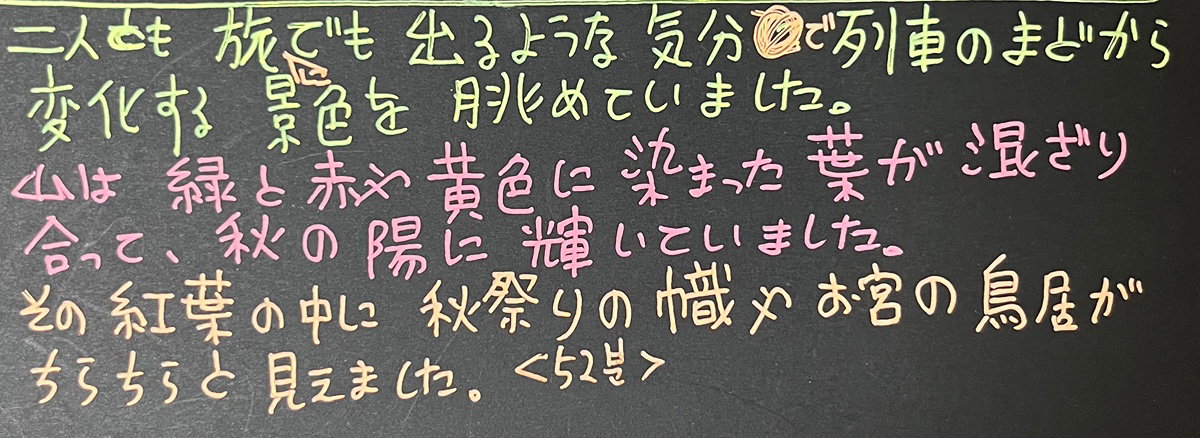 二人とも 旅にでも 出るような 気分で列車のまどから
変化する 景色を 眺めていました。
山は 緑と赤や黄色に 染まった 葉が 混ざり
合って、秋の陽に輝いていました。
その紅葉の中に 秋祭りの幟や お宮の鳥居が
ちらちらと見えました。<52분>